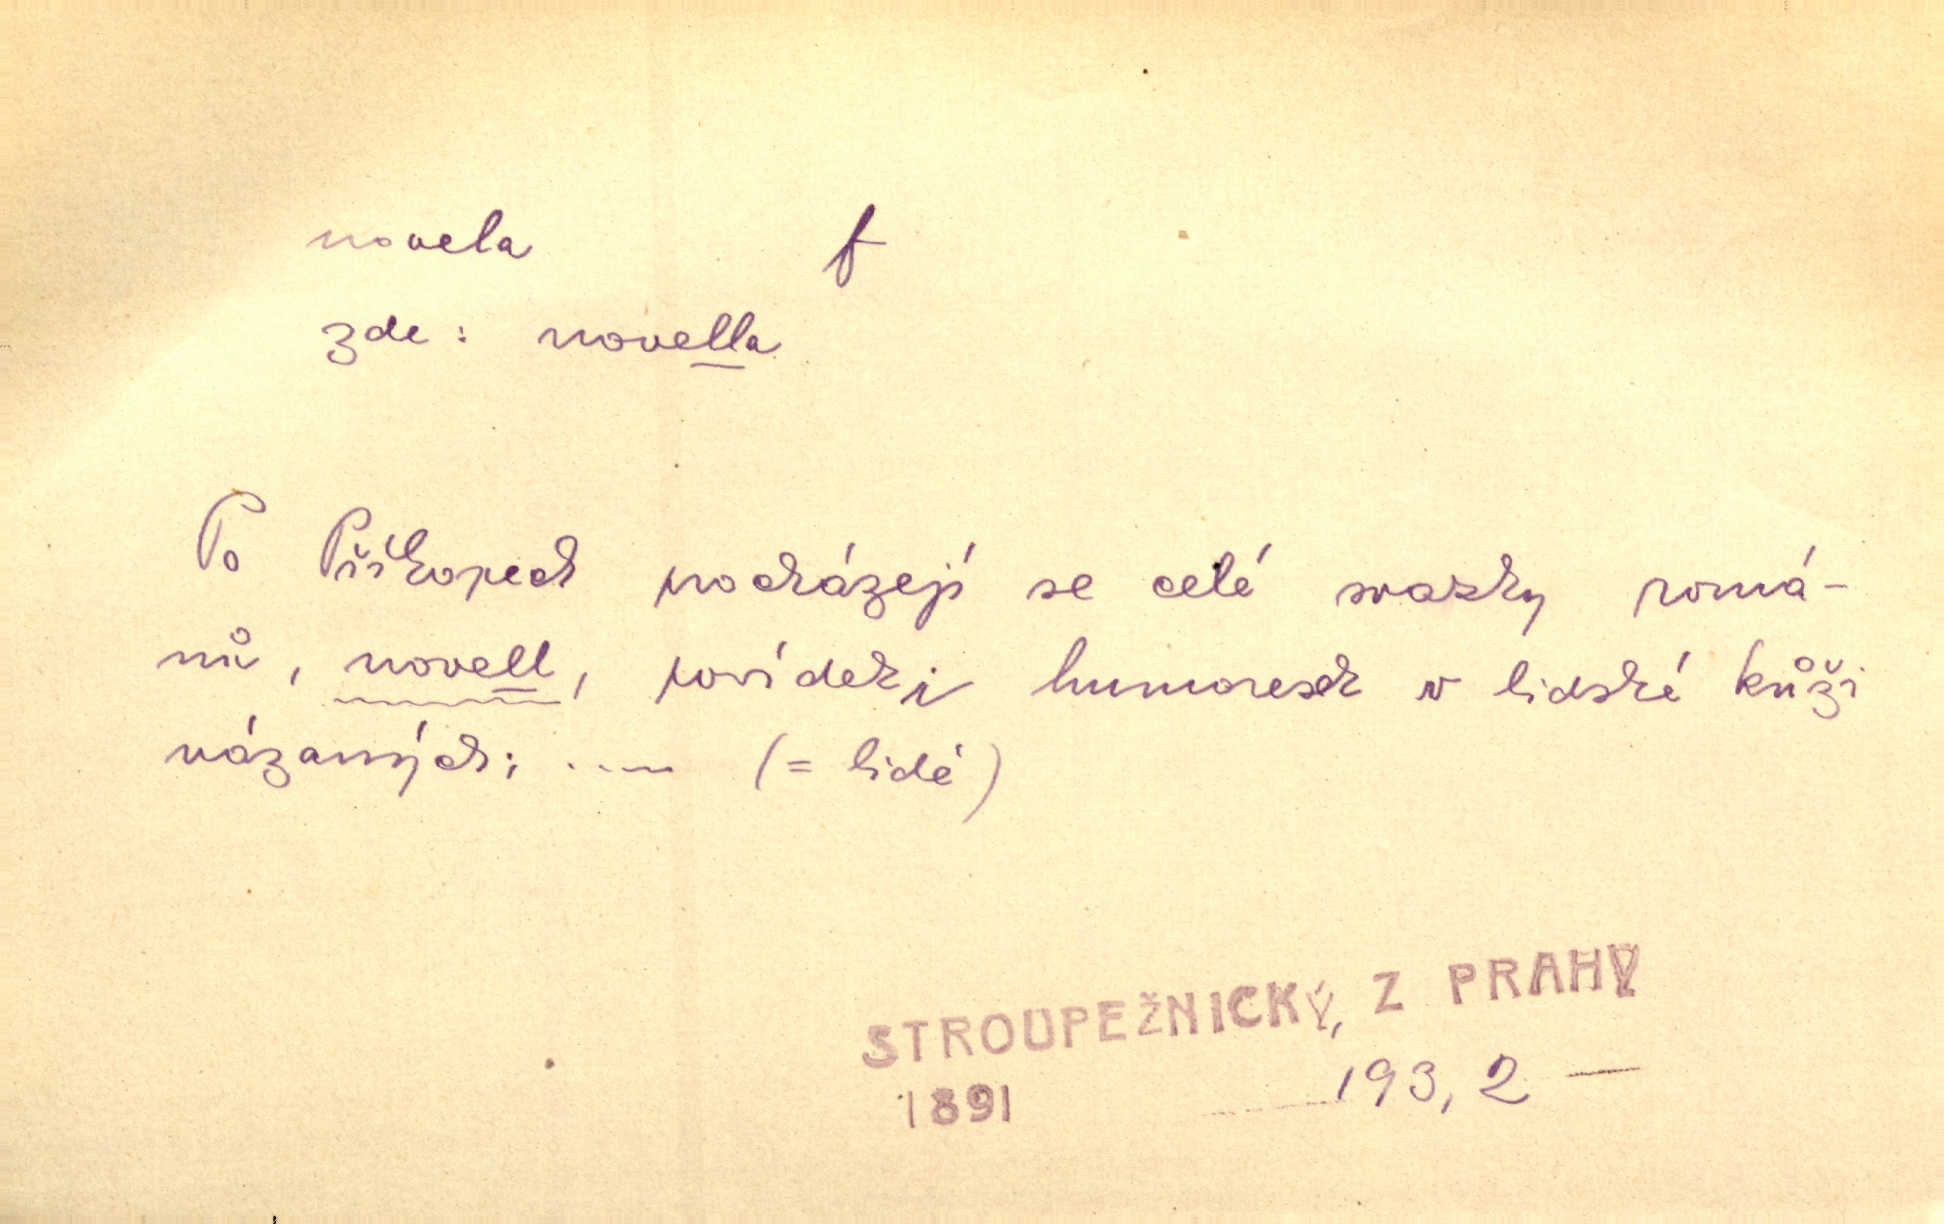 novela f
zde: novella
Po Příkopech procházejí se celé svazky romá-
nů, novell, povídek i humoresek v lidské kůži
vázaných; .... (= lidé)
STROUPEŽNICKÝ, Z PRAHY
1891 193, 2 —